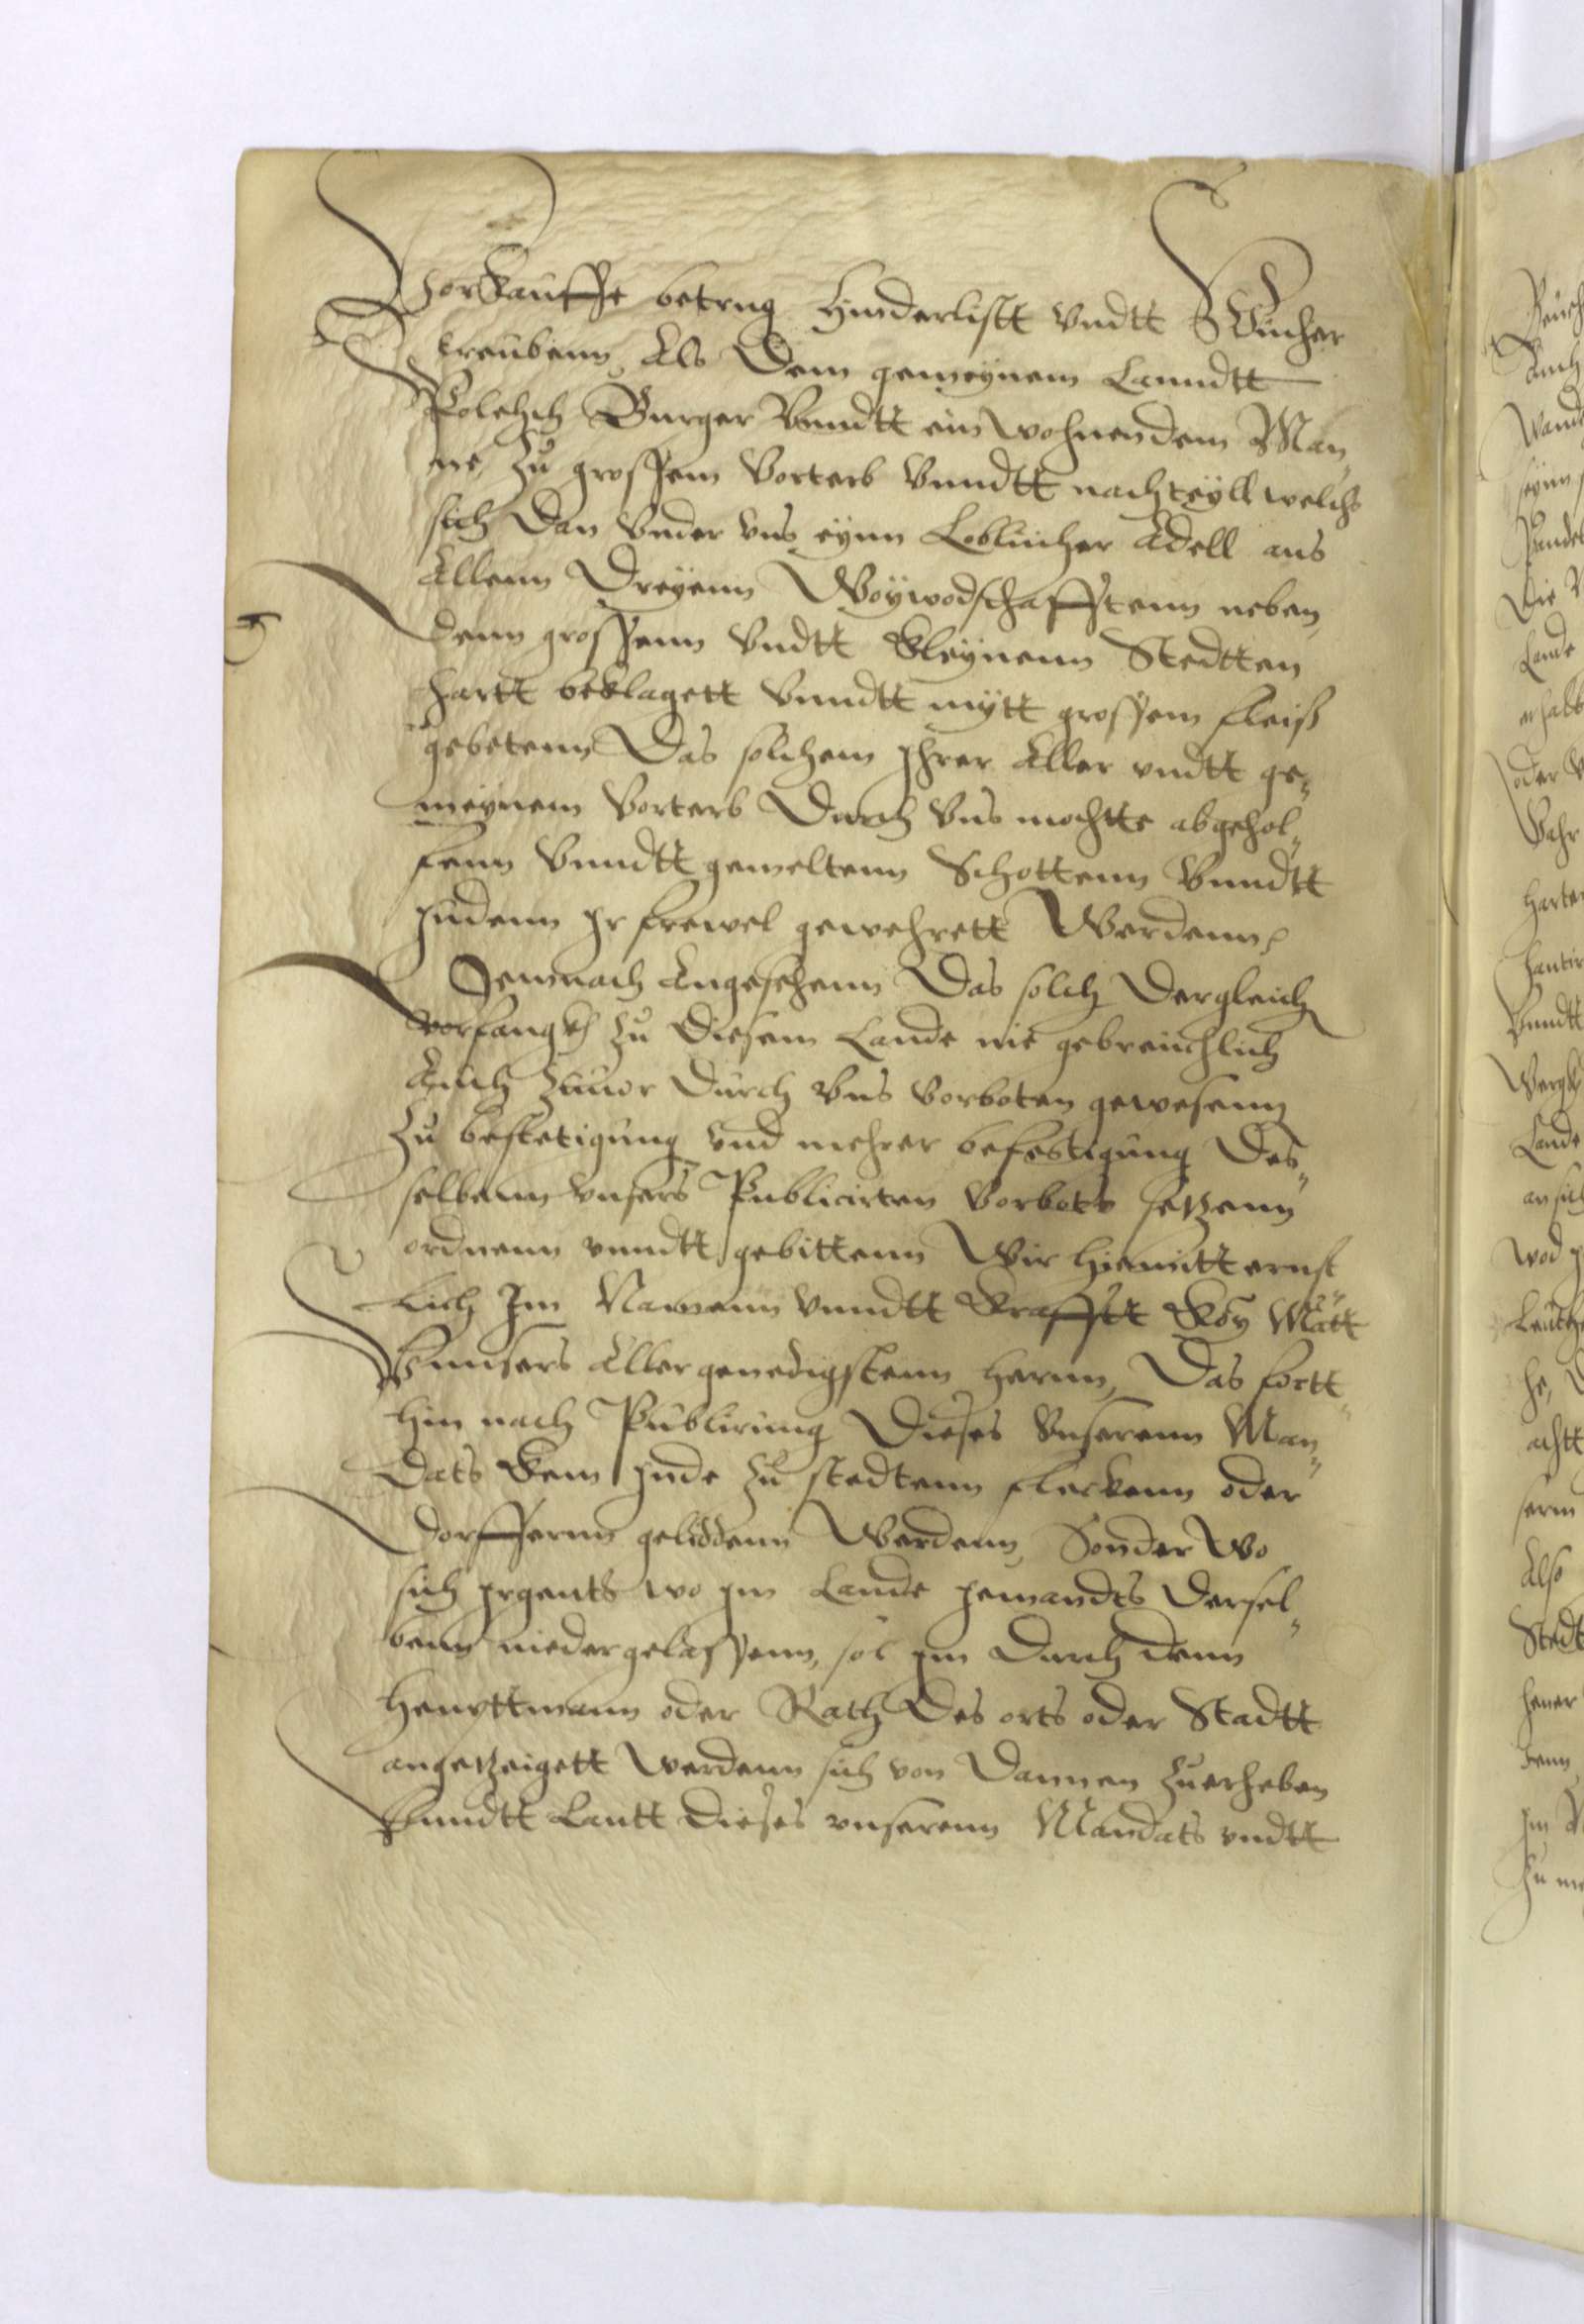 Vorkauffe betrug hinderlistt vndtt Wucher
treubenn, Als Dem gemeynem Lanndtt
Folchch Burger Vnndtt ein wohnendem Man„
ne, zu grossem Vorterb Vnndtt nachteyll welchs
sich Dan Vnder vns eynn Loblicher Adell aus
Allenn Dreyenn Woywodschafftenn neben
denn grossenn Vndtt Kleynenn Stedtten
hartt beklagett Vnndtt mytt grossem fleiß
gebetenn Das solchem Ihrer Aller vndtt ge„
meynem Vorterb Durch Vns mochtte abgehol„
fenn Vnndtt gemeltenn Schottenn Vnndtt
Judenn Ir frewel gewehrett Werdenn,
Demnach Angesehenn Das solch Dergleich
vorfangk zu Diesem Lande nie gebreuchlich
Auch zuuor Durch Vns Vorboten gewesenn
Zu bestetigung vnd mehrer befestigung Des„
selbenn vnsers Publicirten Vorbots setzenn
ordnenn vnndtt gebittenn Wir hiemitt ernst„
lich Im Namenn Vnndtt Krafftt Köy Mätt
Vnnsers Allergenedigstenn hernn, Das fortt„
hin nach Publirung Dieses Vnserenn Man„
Dats Kein Jude zu stedtenn fleckenn oder
Dorffernn geliddenn Werdenn, Sonder Wo
sich Irgents wo Im Lande Jemandts Dersel„
benn niedergelassenn, sol Im Durch denn
Heuptmann oder Rath Des orts oder Stadtt
angetzeigett Werdenn sich von Dannen zuerheben
Vnndtt Lautt Dieses vnserenn Mandats vndtt